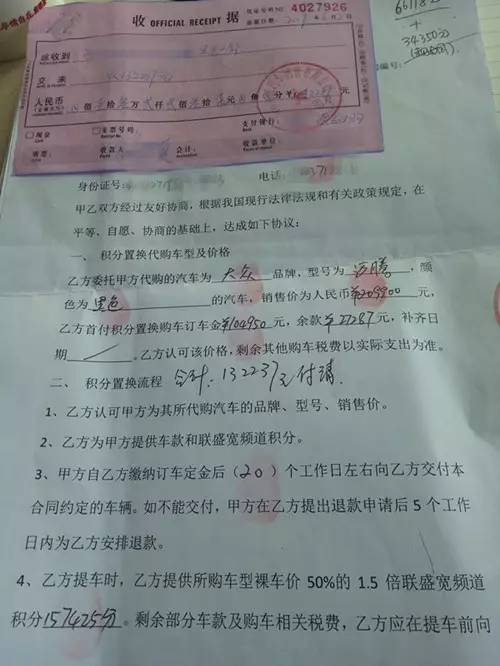 收 OFFICIAL RECEIPT 据
4027926
66118分
+
34350分
兹收到
交来
人民币
现金
支票号码
支付银行
收款人
会计
收款单位
身份证号:
电话
甲乙双方经过友好协商，根据我国现行法律法规和有关政策规定，在
平等、自愿、协商的基础上，达成如下协议：
一、 积分置换代购车型及价格
乙方委托甲方代购的汽车为 大众 品牌，型号为 迈腾 ，颜
色为 黑色 的汽车，销售价为人民币¥209900元，
乙方首付积分置换购车订车金¥104950元，余款¥27287元，补齐日
期 。乙方认可该价格，剩余其他购车税费以实际支出为准。
二、 积分置换流程 合计：132237元付清.
1、乙方认可甲方为其所代购汽车的品牌、型号、销售价。
2、乙方为甲方提供车款和联盛宽频道积分。
3、甲方自乙方缴纳订车定金后（20）个工作日左右向乙方交付本
合同约定的车辆。如不能交付，甲方在乙方提出退款申请后 5 个工作
日内为乙方安排退款。
4、乙方提车时，乙方提供所购车型裸车价 50%的 1.5 倍联盛宽频道
积分157425分。剩余部分车款及购车相关税费，乙方应在提车前向